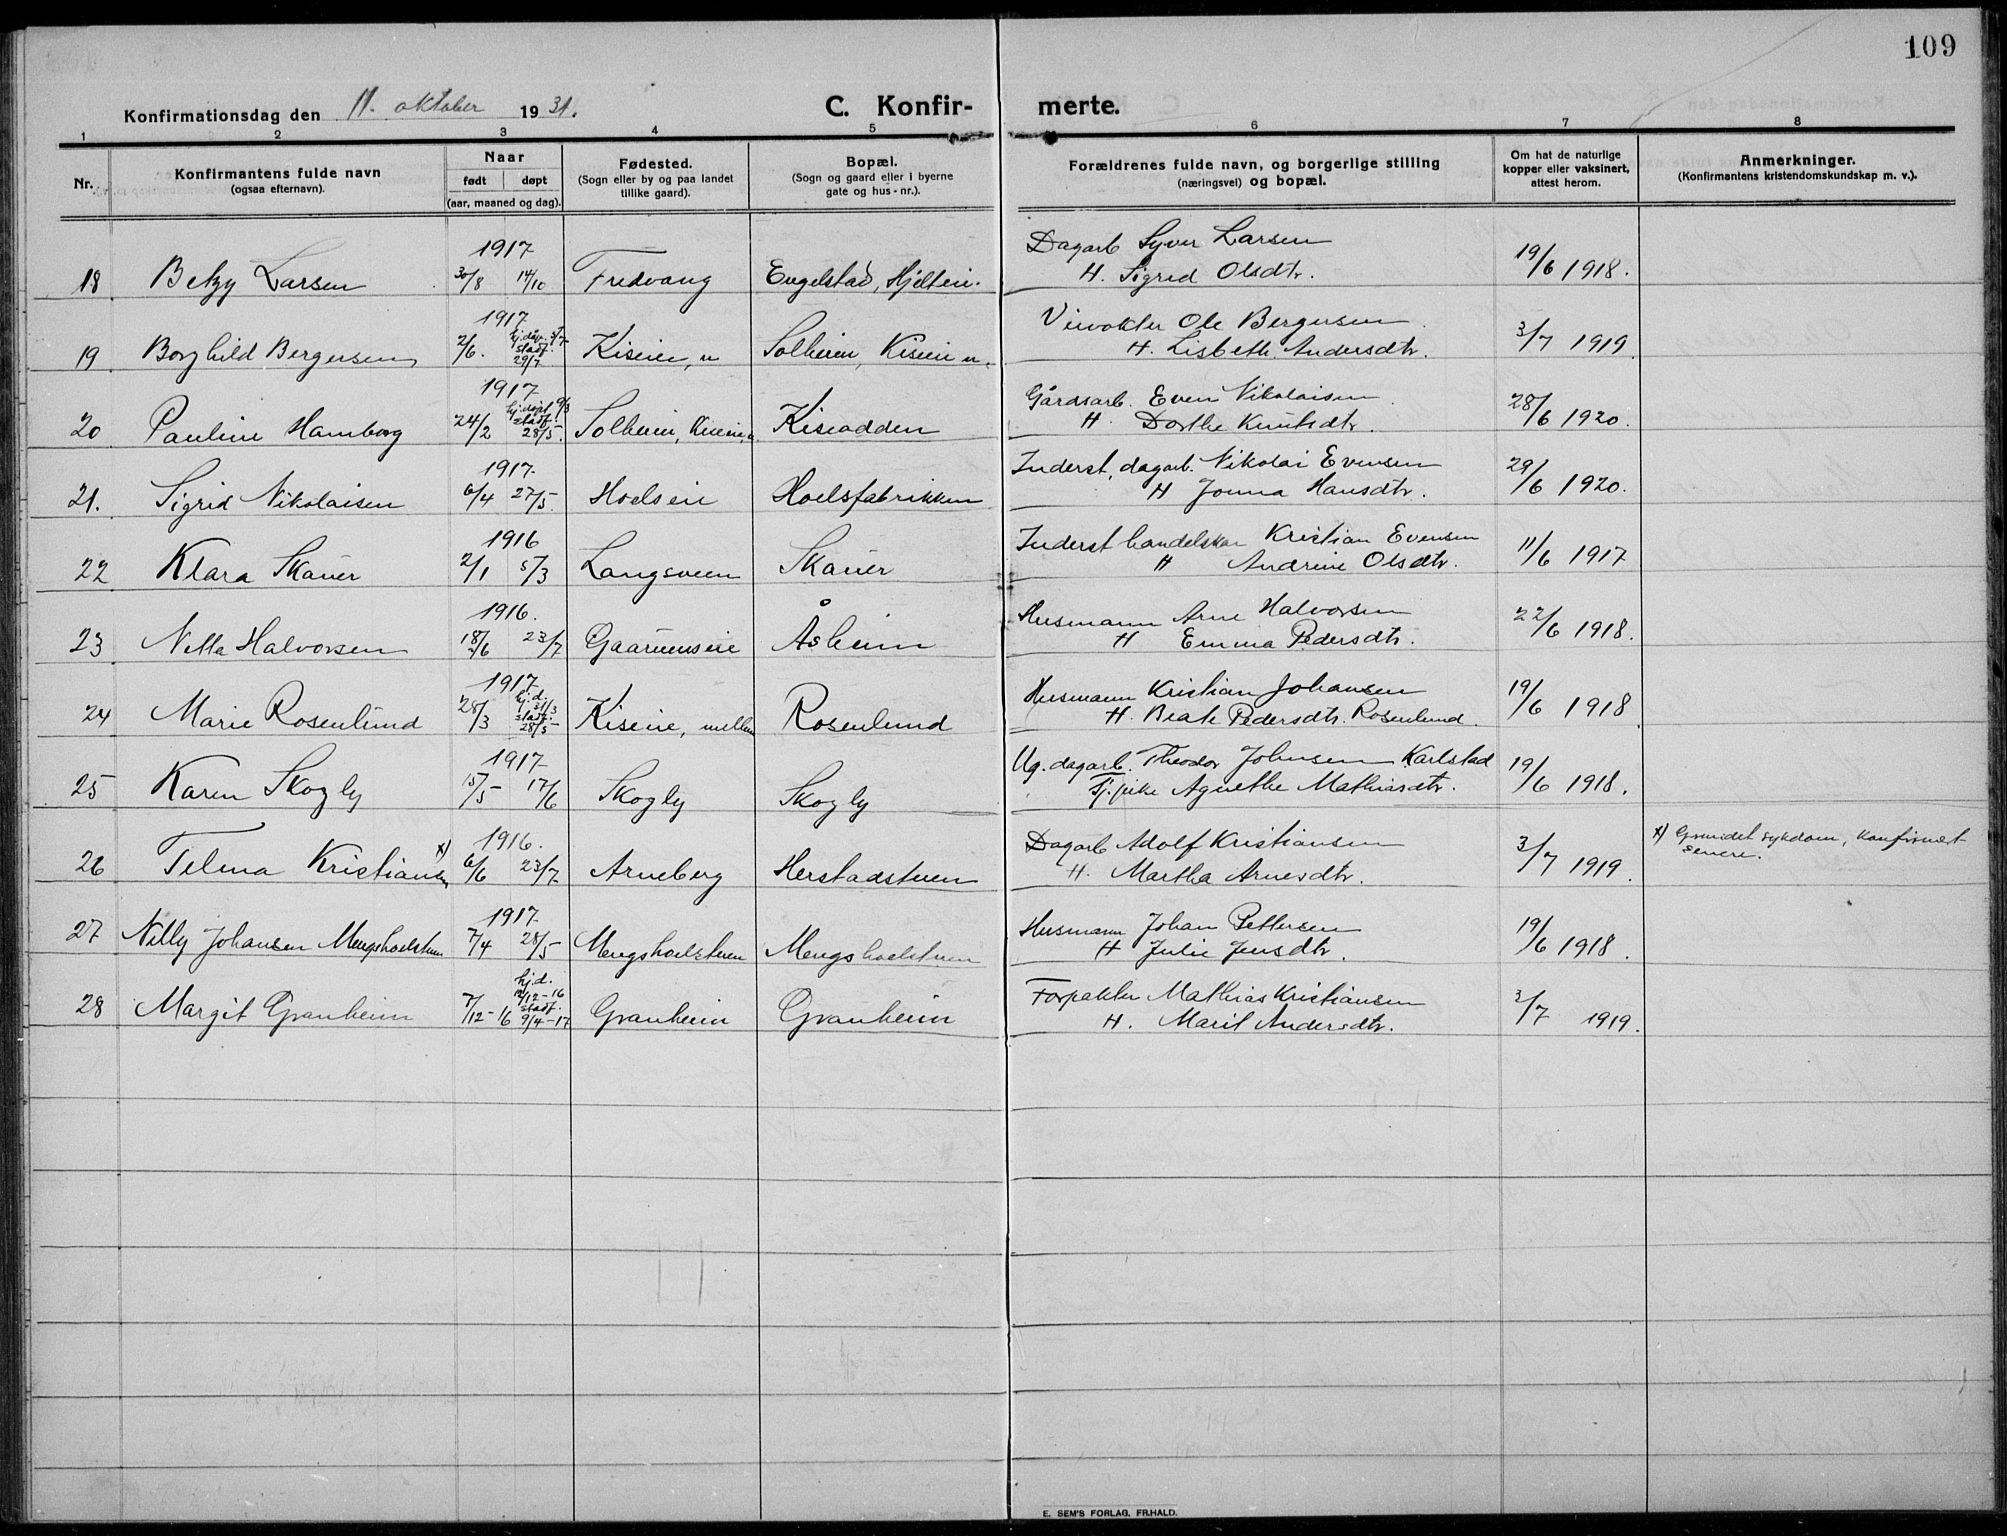 109
Konfirmationsdag den 11. oktober 1931.
C. Konfir-
merte.
1 2 3 4 5 6 7 8
Nr.
Konfirmantens fulde navn
(ogsaa efternavn).
Naar
født døpt
(aar, maaned og dag).
Fødested.
(Sogn eller by og paa landet
tillike gaard).
Bopæl.
(Sogn og gaard eller i byerne
gate og hus-nr.).
Forældrenes fulde navn, og borgerlige stilling
(næringsvei) og bopæl.
Om hat de naturlige
kopper eller vaksinert,
attest herom.
Anmerkninger.
(Konfirmantens kristendomskundskap m. v.).
1917 Dagarb Syver Larsen
18 Betzy Larsen 30/8 14/10 Fredvang Engelstad, Hjelteie. H. Sigrid Olsdtr. 19/6 1918.
1917 Veivokter Ole Bergersen
19 Borghild Bergersen 2/6. hj.døp. 5/7 stadf. 29/7 Kiseie, n Solheim, Kiseie n. H. Lisbeth Andersdtr. 3/7 1919
1917 Gårdsarb. Even Nikolaisen
20 Pauline Hamborg 24/2 hj.døpt 9/3 stadf. 28/5. Solheim, Kiseie, n. Kiseodden H. Dorthe Knutsdtr. 28/6 1920.
1917 Inderst, dagarb. Nikolai Evensen
21. Sigrid Nikolaisen 6/4 27/5. Hoelseie Hoelsfabrikken H Jonna Hansdtr. 29/6 1920.
1916 Inderst handelskar Kristian Evensen
22 Klara Skauer 2/1 5/3 Langsveen Skauer H Andrine Olsdtr. 11/6 1917
1916. Husmann Arne Halvorsen
23 Nella Halvorsen 18/6 23/7 Gaaruenseie Åsheim H Emma Pedersdtr. 22/6 1918.
1917 Husmann Kristian Johansen
24 Marie Rosenlund 28/3 hj.d. 31/3 stadf. 28/5 Kiseie, mellem Rosenlund H. Beate Pedersdtr. Rosenlund. 19/6 1918
1917 Ug. dagarb. Theodor Johnsen Karlstad
25 Karen Skogly 15/5 17/6 Skogly Skogly Tj.pike Agnethe Mathiasdtr. 19/6 1918.
1916. Dagarb Adolf Kristiansen x) Grundet sykdom, konfirmert
26 Telma Kristiansen x) 6/6 23/7 Arneberg Herstadstuen H. Martha Arnesdtr. 3/7 1919. senere.
1917 Husmann Johan Pettersen
27 Nelly Johansen Mengshoelstuen 7/4 28/5 Mengshoelstuen Mengshoelstuen H Julie Jensdtr. 19/6 1918.
hj.d. 12/12-16 Forpakter Mathias Kristiansen
28 Margit Granheim 7/12-16 stadf. 9/4-17 Granheim Granheim H. Marit Andersdtr. 3/7 1919.
E. SEM'S FORLAG, FR.HALD.